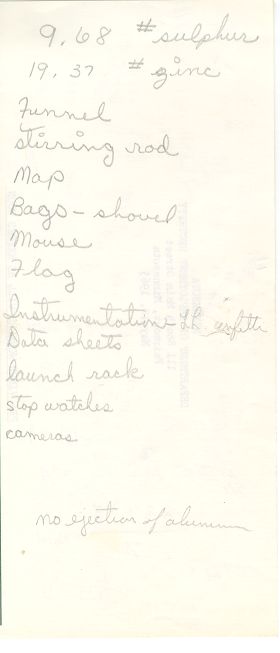 9.68 # sulphur
19.37 # zinc
Funnel
stirring rod
Map
Bags - shovel
Mouse
Flag
Instrumentation
Data sheets
launch rack
stop watches
cameras
no ejection of aluminum